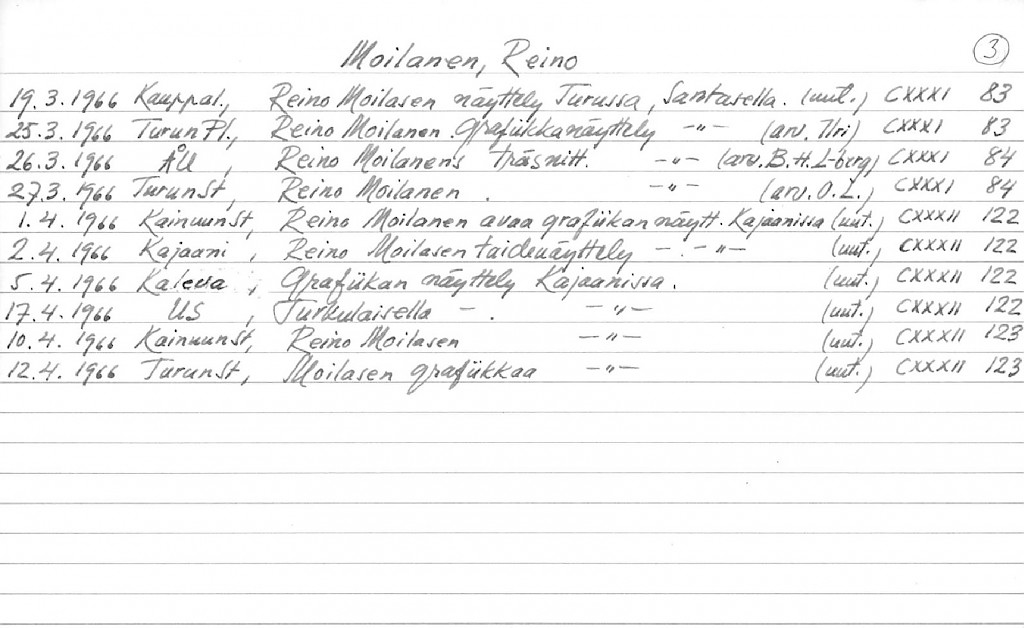 Moilanen, Reino 3
19.3.1966 Kauppal., Reino Moilasen näyttely Turussa, Santasella. (uut.) CXXXI 83
25.3.1966 TurunPl., Reino Moilanen Grafiikkanäyttely -"- (arv. Ilri) CXXXI 83
26.3.1966 ÅU, Reino Moilanens träsnitt. -"- (arv. B.H.L-berg) CXXXI 84
27.3.1966 TurunSt, Reino Moilanen. -"- (arv. O.L.) CXXXI 84
1.4.1966 KainuunSt, Reino Moilanen avaa grafiikan näytt. Kajaanissa (uut.) CXXXII 122
2.4.1966 Kajaani, Reino Moilasen taidenäyttely - . -"- (uut.) CXXXII 122
5.4.1966 Kaleva, Grafiikan näyttely Kajaanissa. (uut.) CXXXII 122
17.4.1966 US, Turkulaisella - . -"- (uut.) CXXXII 122
10.4.1966 KainuunSt, Reino Moilasen -"- (uut.) CXXXII 123
12.4.1966 TurunSt, Moilasen grafiikkaa -"- (uut.) CXXXII 123